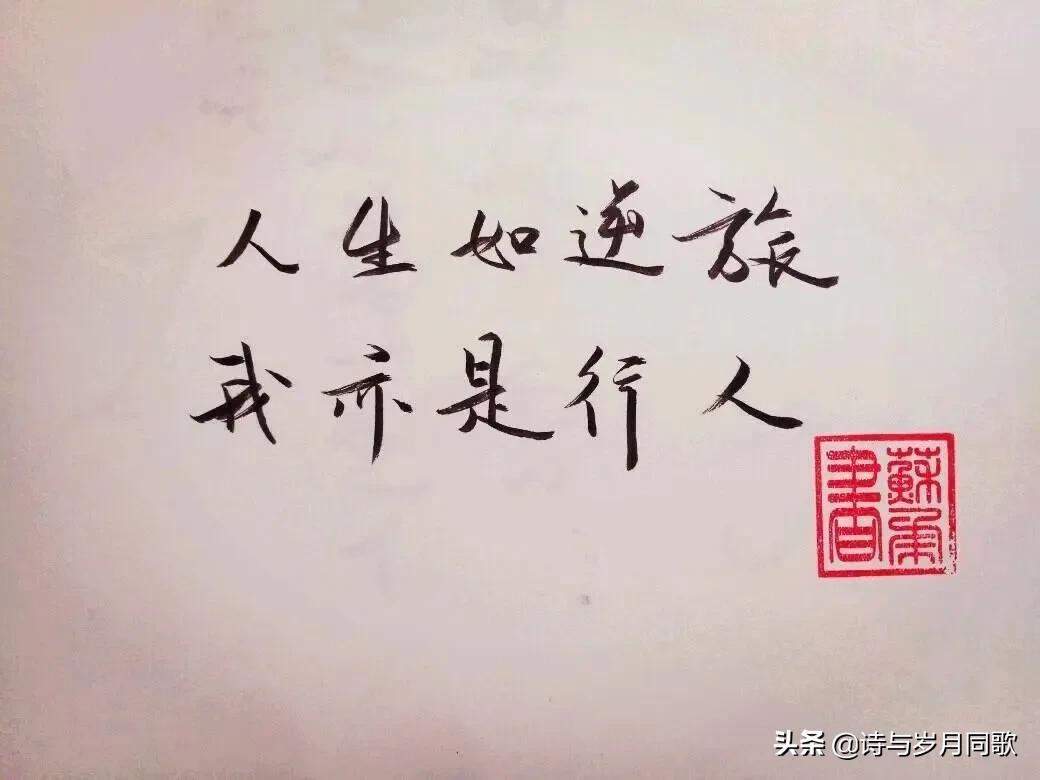 人生如逆旅
我亦是行人
蘇
書
头条 @诗与岁月同歌